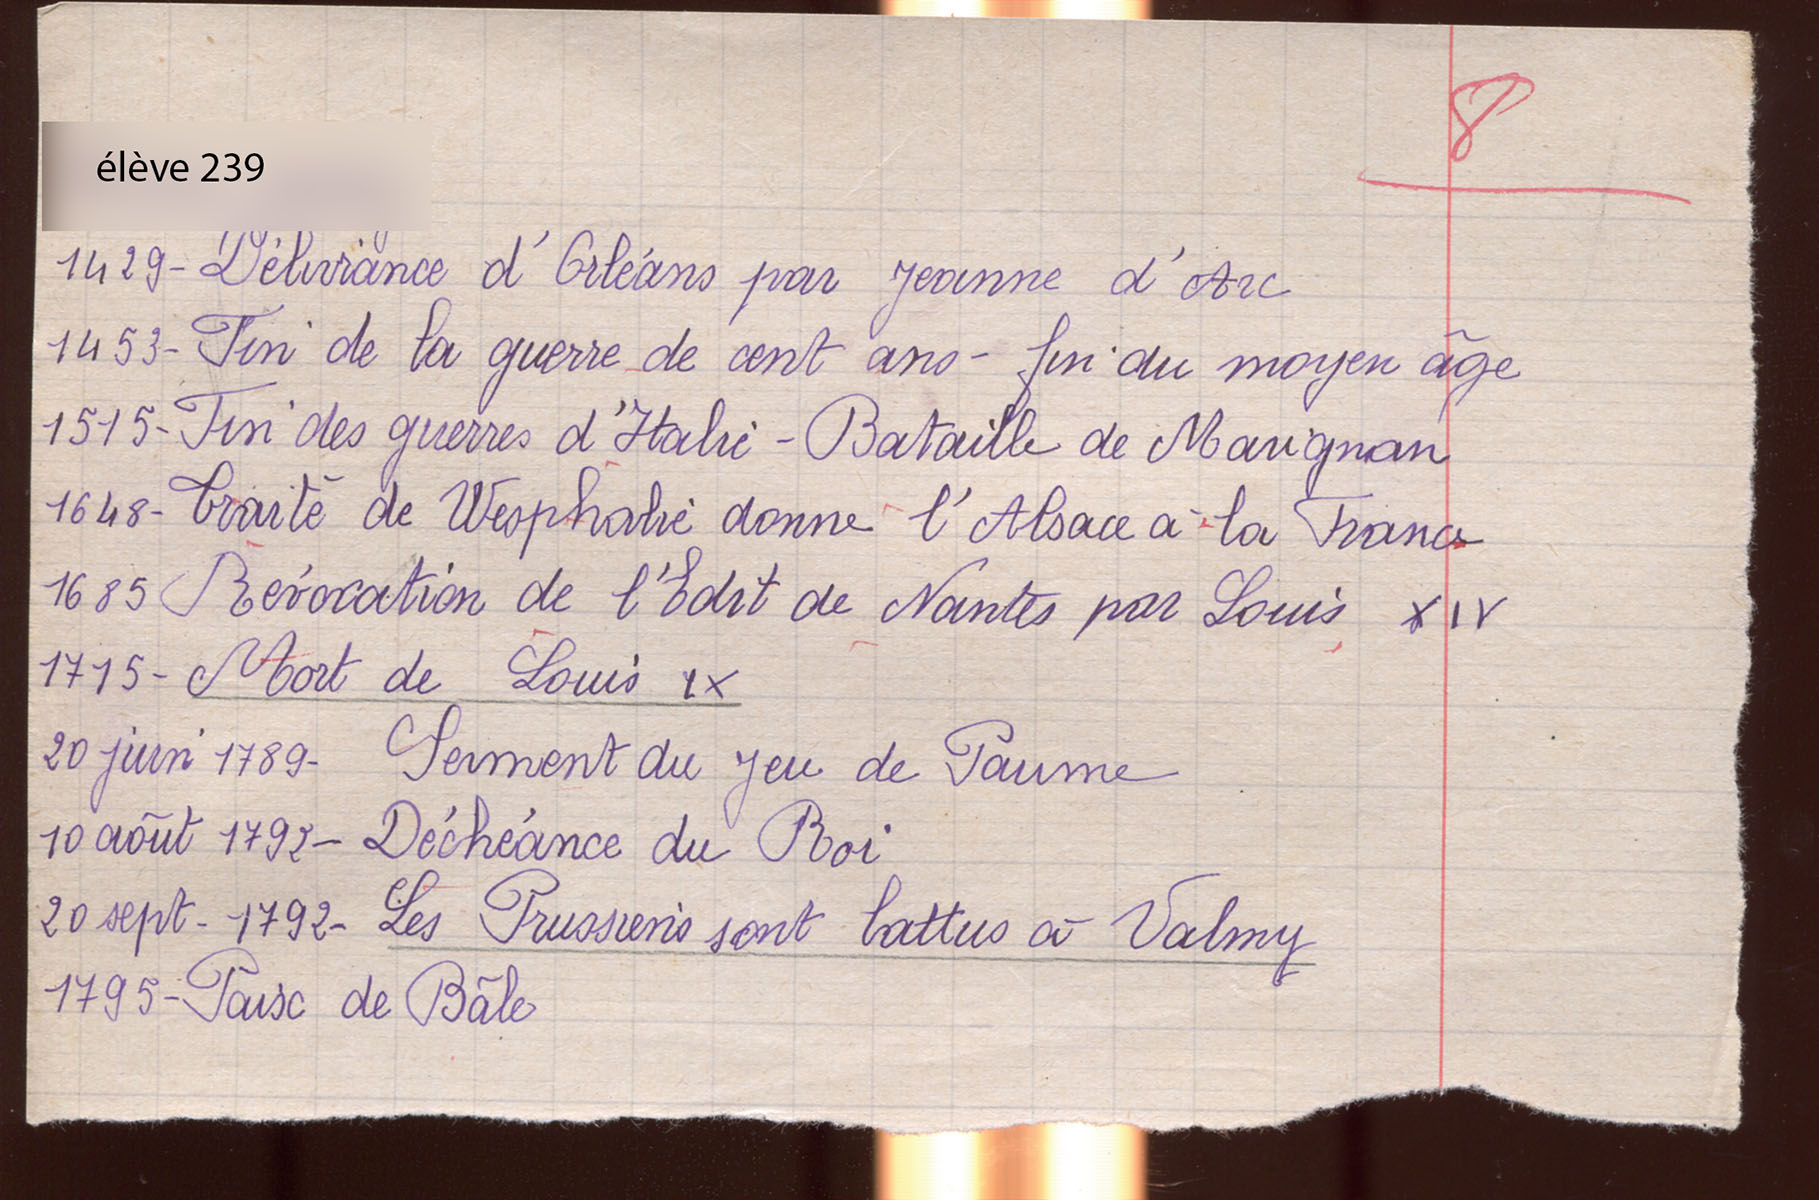 8
élève 239
1429- Délivrance d'Orléans par Jeanne d'Arc
1453- Fin de la guerre de cent ans - fin du moyen âge
1515- Fin des guerres d'Italie - Bataille de Marignan
1648- Traité de Wesphalie donne l'Alsace à la France
1685 Révocation de l'Edit de Nantes par Louis XIV
1715- Mort de Louis IX
20 juin 1789- Serment du jeu de Paume
10 août 1792- Déchéance du Roi
20 sept- 1792- Les Prussiens sont battus à Valmy
1795- Paix de Bâle